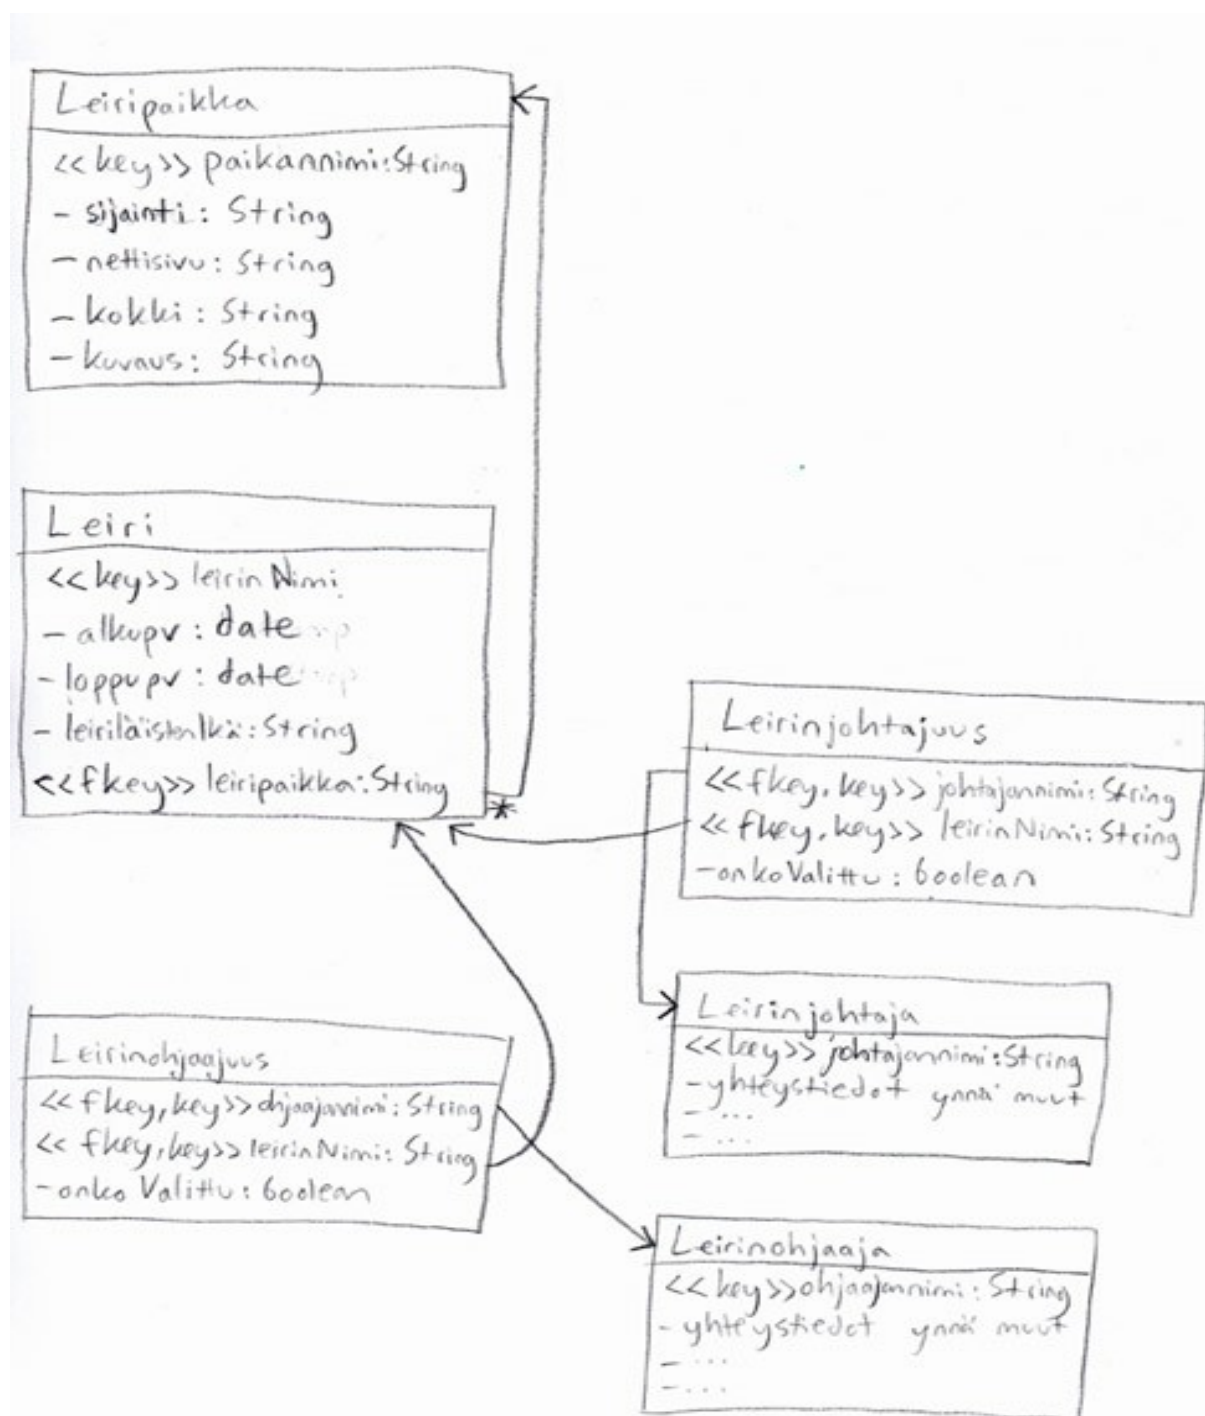 Leiripaikka
<<key>> paikannimi:String
- sijainti: String
- nettisivu: String
- kokki: String
- kuvaus: String
Leiri
<<key>> leirinNimi
- alkupv: date
- loppupv: date
- leiriläistenIkä: String
<<fkey>> leiripaikka: String
*
Leirinjohtajuus
<<fkey, key>> johtajannimi: String
<<fkey, key>> leirinNimi: String
- onkoValittu: boolean
Leirinjohtaja
<<key>> johtajannimi: String
- yhteystiedot ynnä muut
- ...
- ...
Leirinohjaajuus
<<fkey, key>> ohjaajannimi: String
<<fkey, key>> leirinNimi: String
- onkoValittu: boolean
Leirinohjaaja
<<key>> ohjaajannimi: String
- yhteystiedot ynnä muut
- ...
- ...